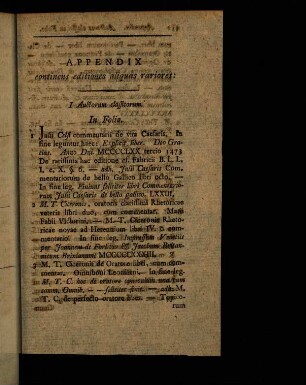 APPENDIX
continens editiones aliquas rariores:
I Auctorum classicorum.
In Folio.
1 Julii Celsi commentarii de vita Caesaris, In
fine legitur haec: Explicit liber. Deo Gra-
tias. Anno Dni MCCCCLXX tertio 1473
De rarissima hac editione cf. Fabricii B. L. L.
I. c. X. §. 6. — adj. Julii Caesaris Com-
mentariorum de bello Gallico libri octo,
In fine leg. Finiunt feliciter libri Commentario-
rum Julii Caesaris de bello gallico. LXXIII.
2 M. T. Ciceronis, oratoris clarissimi Rhetoricae
veteris libri duo, cum commentar. Marii
Fabii Victorini, — M. T. Ciceronis Rhetori-
cae novae ad Herennium libri IV. c. com-
mentariis. In fine leg. Impressum Venetiis
per
3 M. T. Ciceronis de Oratore libri, cum com-
mentar. Omniboni Leoniceni. In fine leg.
M. T. C. hoc de oratore
comm. Omnib. — feliciter finit. — adj. M.
T. C. de perfecto oratore liber. Typi
rum